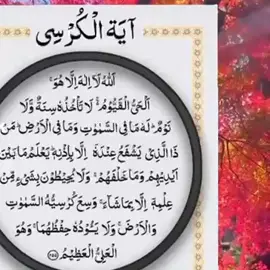 آيَةُ الْكُرْسِى
اَللّٰهُ لَآ اِلٰهَ اِلَّا هُوَ ۚ
اَلْحَىُّ الْقَيُّوْمُ ۚ لَا تَاْخُذُهٗ سِنَةٌ وَّلَا
نَوْمٌ ؕ لَهٗ مَا فِى السَّمٰوٰتِ وَمَا فِى الْاَرْضِ ؕ مَنْ
ذَا الَّذِىْ يَشْفَعُ عِنْدَهٗۤ اِلَّا بِاِذْنِهٖ ؕ يَعْلَمُ مَا بَيْنَ
اَيْدِيْهِمْ وَمَا خَلْفَهُمْ ۚ وَلَا يُحِيْطُوْنَ بِشَىْءٍ مِّنْ
عِلْمِهٖۤ اِلَّا بِمَا شَآءَ ۚ وَسِعَ كُرْسِيُّهُ السَّمٰوٰتِ
وَالْاَرْضَ ۚ وَلَا يَـُٔوْدُهٗ حِفْظُهُمَا ۚ وَهُوَ
الْعَلِىُّ الْعَظِيْمُ ﴿۲۵۵﴾